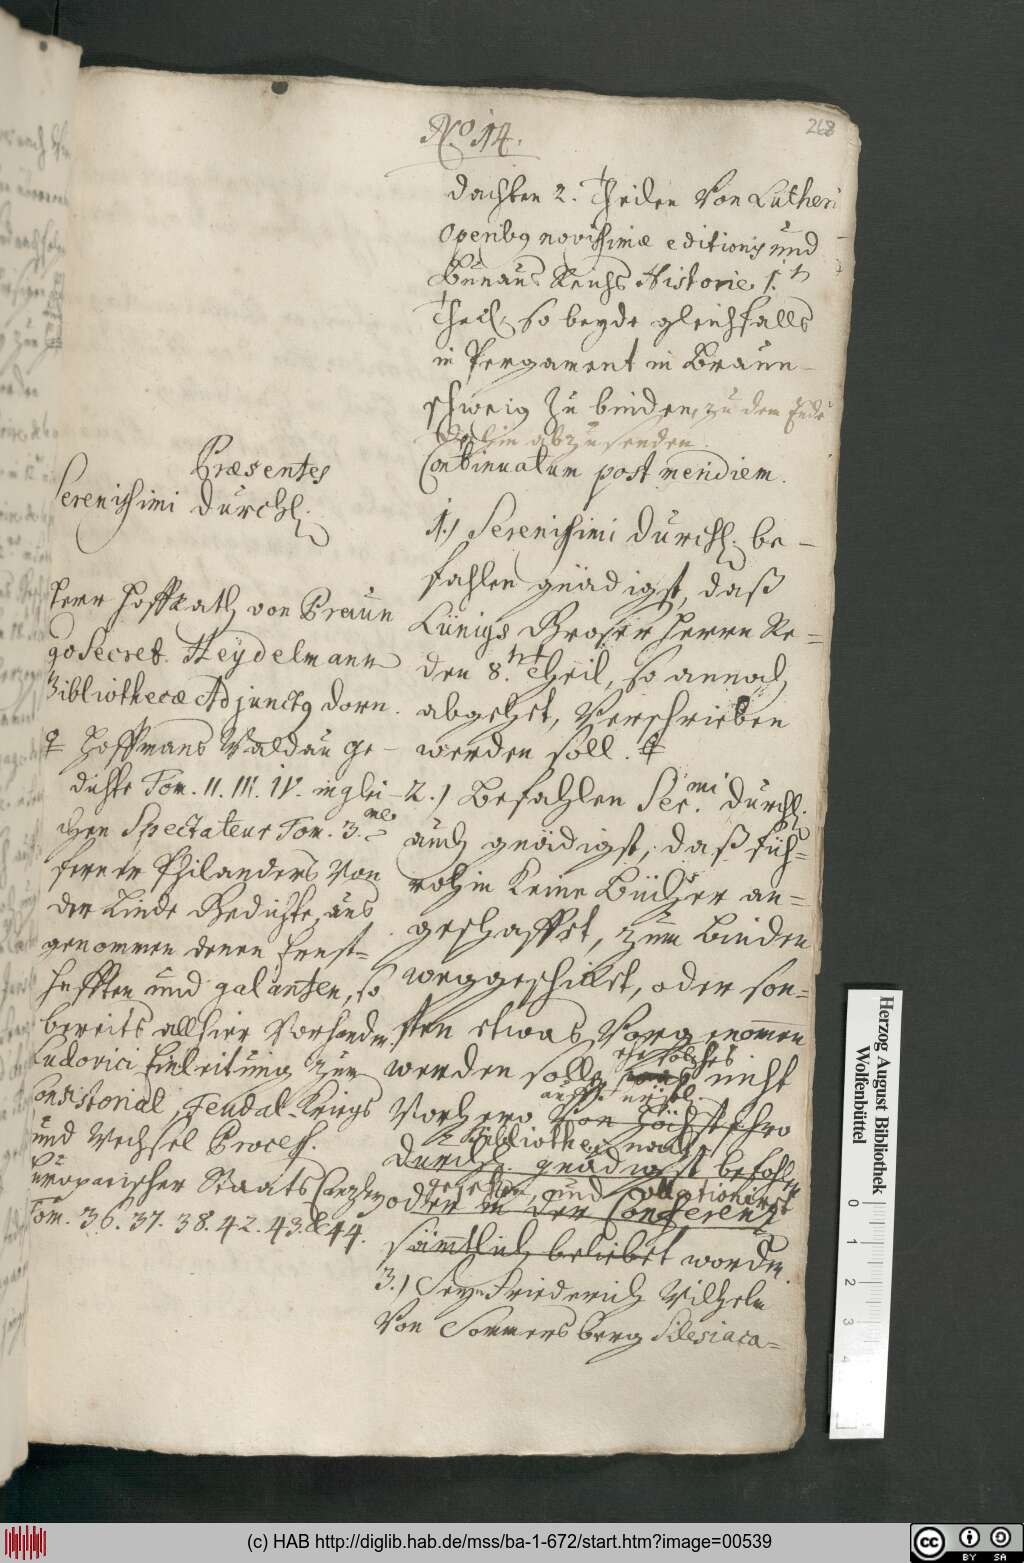 No. 14.
268
dachten 2. Theilen von Lutheri
operibus novissimae editionis und
Bünaus Reichs Historie 1.
Theil, so beyde gleichfalls
in Pergament in Braun-
schweig zu binden, zu dem Ende
dahin abzusenden.
Continuatum post meridiem.
1.) Serenissimi Durchl. be-
fahlen gnädigst, daß
Lünigs Groser Herrn Re=
den 8. Theil, so annoch
abgehet, verschrieben
werden soll. ‡
2.) Befahlen Ser.mi Durchl.
auch gnädigst, daß füh=
rohin keine Bücher an=
geschaffet, zum Binden
weggeschickt, oder son=
sten etwas vorgenom̄en
werden solle, ehe solches nicht
auff
vorhero von Höchst Ihro
Bibliothec nach
Durchl. gnädigst befohlen
gesehen, und collationiret
oder in der Conferentz
sämtlich beliebet worden.
3.) Sey Friederich Wilhelm
von Sommersberg Silesiaca=
Præsentes
Serenissimi Durchl.
Herr Hoffrath von Praun
Secret. Heydelmann
Bibliothecæ Adjunctus Dorn.
‡ Hoffmans Waldau Ge-
dichte Tom. II. III. IV. inglei-
chen Spectateur Tom. 3.
ferner Philanders von
der Linde Gedichte, aus
genommen denen Ernst=
hafften und galanten, so
bereits allhier vorhanden.
Ludovici Einleitung zum
Consistorial, Feudal-Kriegs
und Wechsel Process.
Europæischer Staats Cantzley
Tom. 36. 37. 38. 42. 43. & 44.
Herzog August Bibliothek
Wolfenbüttel
0
1
2
3
4
(c) HAB http://diglib.hab.de/mss/ba-1-672/start.htm?image=00539
cc BY SA